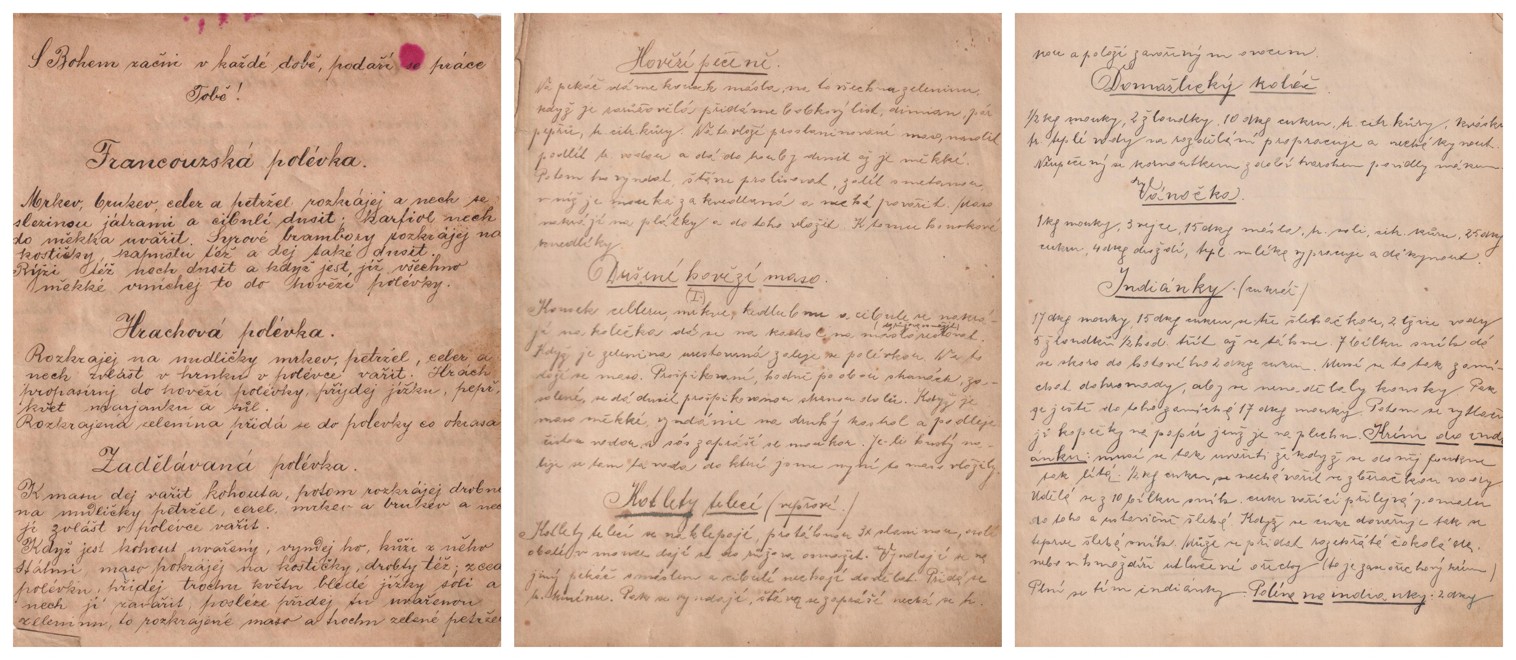 S Bohem začni v každé době, podaří se práce
Tobě!
Francouzská polévka.
Mrkev, brukev, celer a petržel rozkrájej a nech se
slezinou játrami a cibulí dusit; karfiol nech
do měkka uvařit. Syrové brambory rozkrájej na
kostičky, kapustu též a dej také dusit.
Rýži též nech dusit a když jest již všechno
měkké vmíchej to do hovězí polévky.
Hrachová polévka.
Rozkrájej na nudličky mrkev, petržel, celer a
nech zvlášt v hrnku v polévce vařit. Hrách
propasíruj do hovězí polévky, přidej jížku, pepř,
květ marjánku a sůl.
Rozkrájená zelenina přidá se do polévky co okrasa
Zadělávaná polévka.
K masu dej vařit kohouta, potom rozkrájej drobně
na nudličky petržel, celer, mrkev a brukev a nech
ji zvlášt v polévce vařit.
Když jest kohout uvařený, vyndej ho, kůži z něho
stáhni, maso pokrájej na kostičky, drobty též; zceď
polévku, přidej trochu květu bledé jížky soli a
nech ji zavařit posléze přidej tu uvařenou
zeleninu, to rozkrájené maso a trochu zelené petržele
Hovězí pečeně.
Na pekáč dáme kousek másla, na to všechnu zeleninu,
když je to bobkový list, dimian, pár
pepře, k. citr. kůry. Na to vloží prošpaninované maso, osolit
podlít tr. vodou a dá do trouby dusit až je měkké.
Potom ho vyndat, šťávu prolisovat, zalít smetanou
v níž je mouka zakvedlaná a nechá povařit. Maso
nakrájí na plátky a do toho vložit. K tomu houskové
knedlíky.
Dušené hovězí maso.
(I.)
Kousek celeru, mrkve, kedlubnu a cibule se nakrá-
jí na kolečka dá se na kastrol, na máslo restovat.
Když je zelenina urestovaná zaleje se polévkou. Na to
vloží se maso. Prošpikované, hodně po obou stranách, o-
solené, se dá dusit prošpikovanou stranou dolů. Když je
maso měkké, vyndáme na druhý kastrol a podleje
čistou vodou, a sós zapráší se moukou. Je-li hustý na-
leje se tam ta voda do které jsme nyní to maso vložily.
Kotlety telecí (vepřové.)
Kotlety telecí se naklepají, protáhnou se slaninou, osolí
obalí v mouce dají se do růžova osmažit. Vyndají se na
jiný pekáč s máslem a cibulí nechají dodělat. Přidá se
k. kmínu. Pak se vyndají, šťáva se zapráší nechá se k.
nou a položí zavařeným ovocem.
Domažlický koláč
1/2 kg mouky, 2 žloudky, 10 dkg cukru, k. citr. kůry, kvásku
tr. teplé vody na rozdělání propracuje a nechá kynout.
zdobí tvarohem povidly mákem.
Vánočka.
1 kg mouky, 3 vejce, 15 dkg másla, k. soli, citr. kůru, 25 dkg
cukru, 4 dkg droždí, teplé mléko vypracuje a dá kynout.
Indiánky. (cukrář)
17 dkg mouky, 15 dkg cukru se tře šlehačkou, 2 lžíce vody
5 žloudků 1/4 hod. třít až se táhne. 7 bílků sníh dá
se skoro do hotového 2 dkg cukru. Musí se to tak zamí-
chat dohromady, aby se neudělaly kousky. Pak
se ještě do toho zamíchá 17 dkg mouky. Potom se vytlačí
jí kopečky na papír jenž je na plechu. Krém do indi-
ánků: musí se tak umíti že když se do něj foukne
tak lítá. 1/2 kg cukru se nechá vařit se sběračkou vody
Udělá se z 10 bílků sníh. cukr vařící přilejvá pomalu
do toho a ustavičně šlehá. Když se cukr dovařuje tak se
teprve šlehá sníh. Může se přidat rozehřátá čokoláda.
nebo v hmoždíři utlučené ořechy (to je zas ořechový krém)
Plní se tím indiánky. Poleva na indiánky: 2 dkg